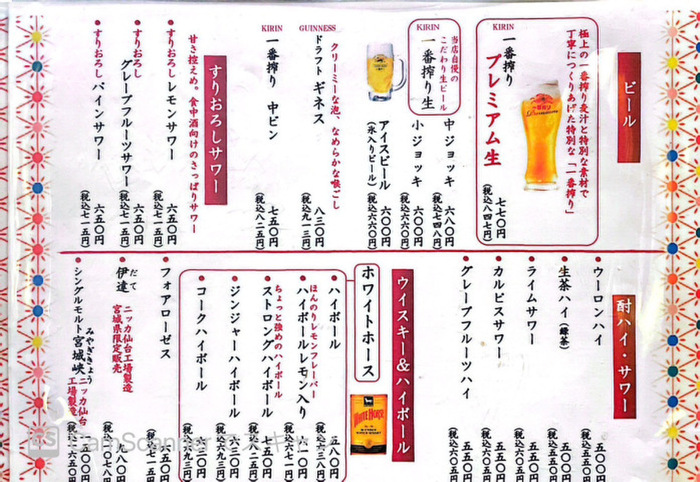 ビール
極上の一番搾り麦汁と特別な素材で
丁寧につくりあげた特別な「一番搾り」
KIRIN
一番搾り
プレミアム生
七七〇円
(税込八四七円)
当店自慢の
こだわり生ビール
KIRIN
一番搾り生
中ジョッキ 六八〇円
(税込七四八円)
小ジョッキ 六〇〇円
(税込六六〇円)
アイスビール 六〇〇円
(氷入りビール) (税込六六〇円)
クリーミーな泡、なめらかな喉ごし
GUINNESS
ドラフトギネス 八三〇円
(税込九一三円)
KIRIN
一番搾り 中ビン 七五〇円
(税込八二五円)
すりおろしサワー
甘さ控えめ。食中酒向けのさっぱりサワー
すりおろし
レモンサワー 六五〇円
(税込七一五円)
すりおろし
グレープフルーツサワー 六五〇円
(税込七一五円)
すりおろし
パインサワー 六五〇円
(税込七一五円)
酎ハイ・サワー
ウーロンハイ 五五〇円
(税込六〇五円)
生茶ハイ(緑茶) 五五〇円
(税込六〇五円)
ライムサワー 五五〇円
(税込六〇五円)
カルピスサワー 五五〇円
(税込六〇五円)
グレープフルーツハイ 五五〇円
(税込六〇五円)
ウイスキー&ハイボール
ホワイトホース
WHITE HORSE
ハイボール 五八〇円
(税込六三八円)
ほんのりレモンフレーバー
ハイボールレモン入り 六一〇円
(税込六七一円)
ちょっと強めのハイボール
ストロングハイボール
ジンジャーハイボール 六三〇円
(税込六九三円)
コークハイボール 六三〇円
(税込六九三円)
フォアローゼス
だて
伊達
ニッカ仙台工場製造
宮城県限定販売
九八〇円
(税込一〇七八円)
みやぎきょう
シングルモルト宮城峡
ニッカ仙台
工場製造
CS CamScanner